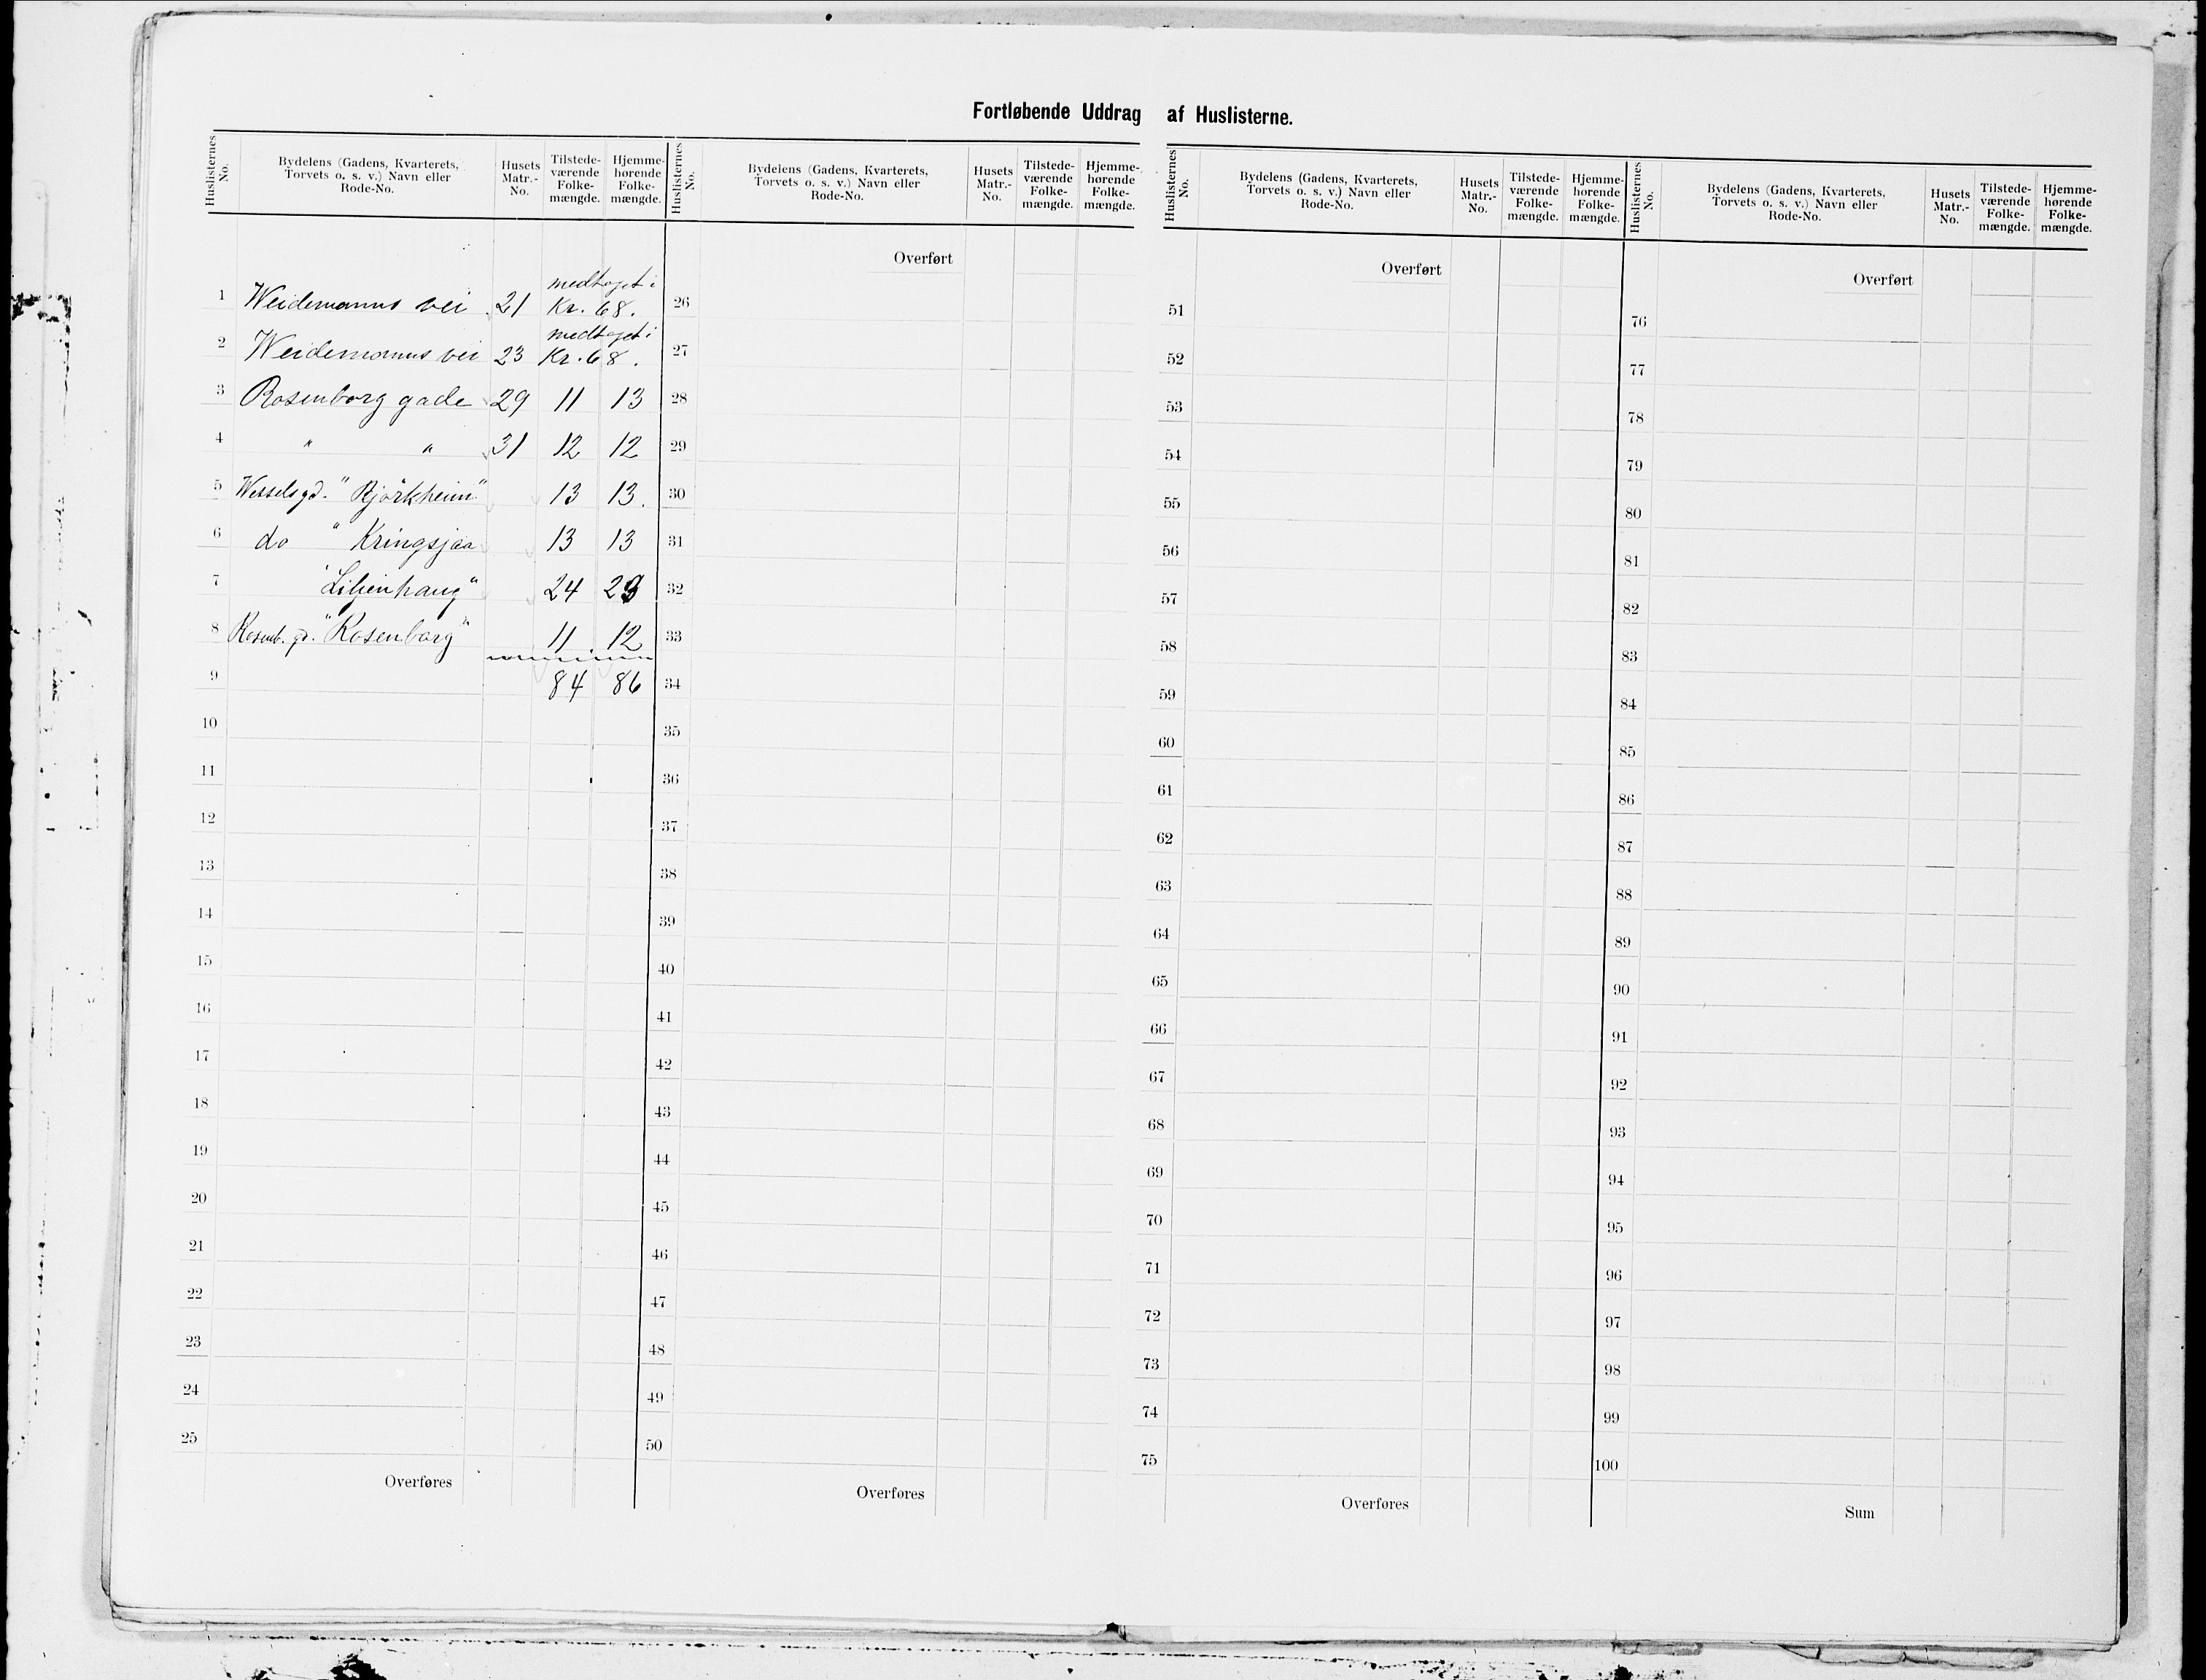 Fortløbende Uddrag af Huslisterne.
Huslisternes No. Bydelens (Gadens, Kvarterets, Torvets o. s. v.) Navn eller Rode-No. Husets Matr.-No. Tilstede-værende Folke-mængde. Hjemme-hørende Folke-mængde.
Huslisternes No. Bydelens (Gadens, Kvarterets, Torvets o. s. v.) Navn eller Rode-No. Husets Matr.-No. Tilstede-værende Folke-mængde. Hjemme-hørende Folke-mængde.
Huslisternes No. Bydelens (Gadens, Kvarterets, Torvets o. s. v.) Navn eller Rode-No. Husets Matr.-No. Tilstede-værende Folke-mængde. Hjemme-hørende Folke-mængde.
Huslisternes No. Bydelens (Gadens, Kvarterets, Torvets o. s. v.) Navn eller Rode-No. Husets Matr.-No. Tilstede-værende Folke-mængde. Hjemme-hørende Folke-mængde.
medtaget i
1 Weidemanns vei 21 Kr. 68.
medtaget i
2 Weidemanns vei 23 Kr. 68.
3 Rosenborg gade 29 11 13
4 " " 31 12 12
5 Wesselsgd. "Bjørkheim" 13 13.
6 do " Kringsjaa 13 13
7 "Liljenhaug" 24 23
8 Rosenb. gd. "Rosenborg" 11 12
9 84 86
10
11
12
13
14
15
16
17
18
19
20
21
22
23
24
25
Overføres
Overført
26
27
28
29
30
31
32
33
34
35
36
37
38
39
40
41
42
43
44
45
46
47
48
49
50
Overføres
Overført
51
52
53
54
55
56
57
58
59
60
61
62
63
64
65
66
67
68
69
70
71
72
73
74
75
Overføres
Overført
76
77
78
79
80
81
82
83
84
85
86
87
88
89
90
91
92
93
94
95
96
97
98
99
100
Sum